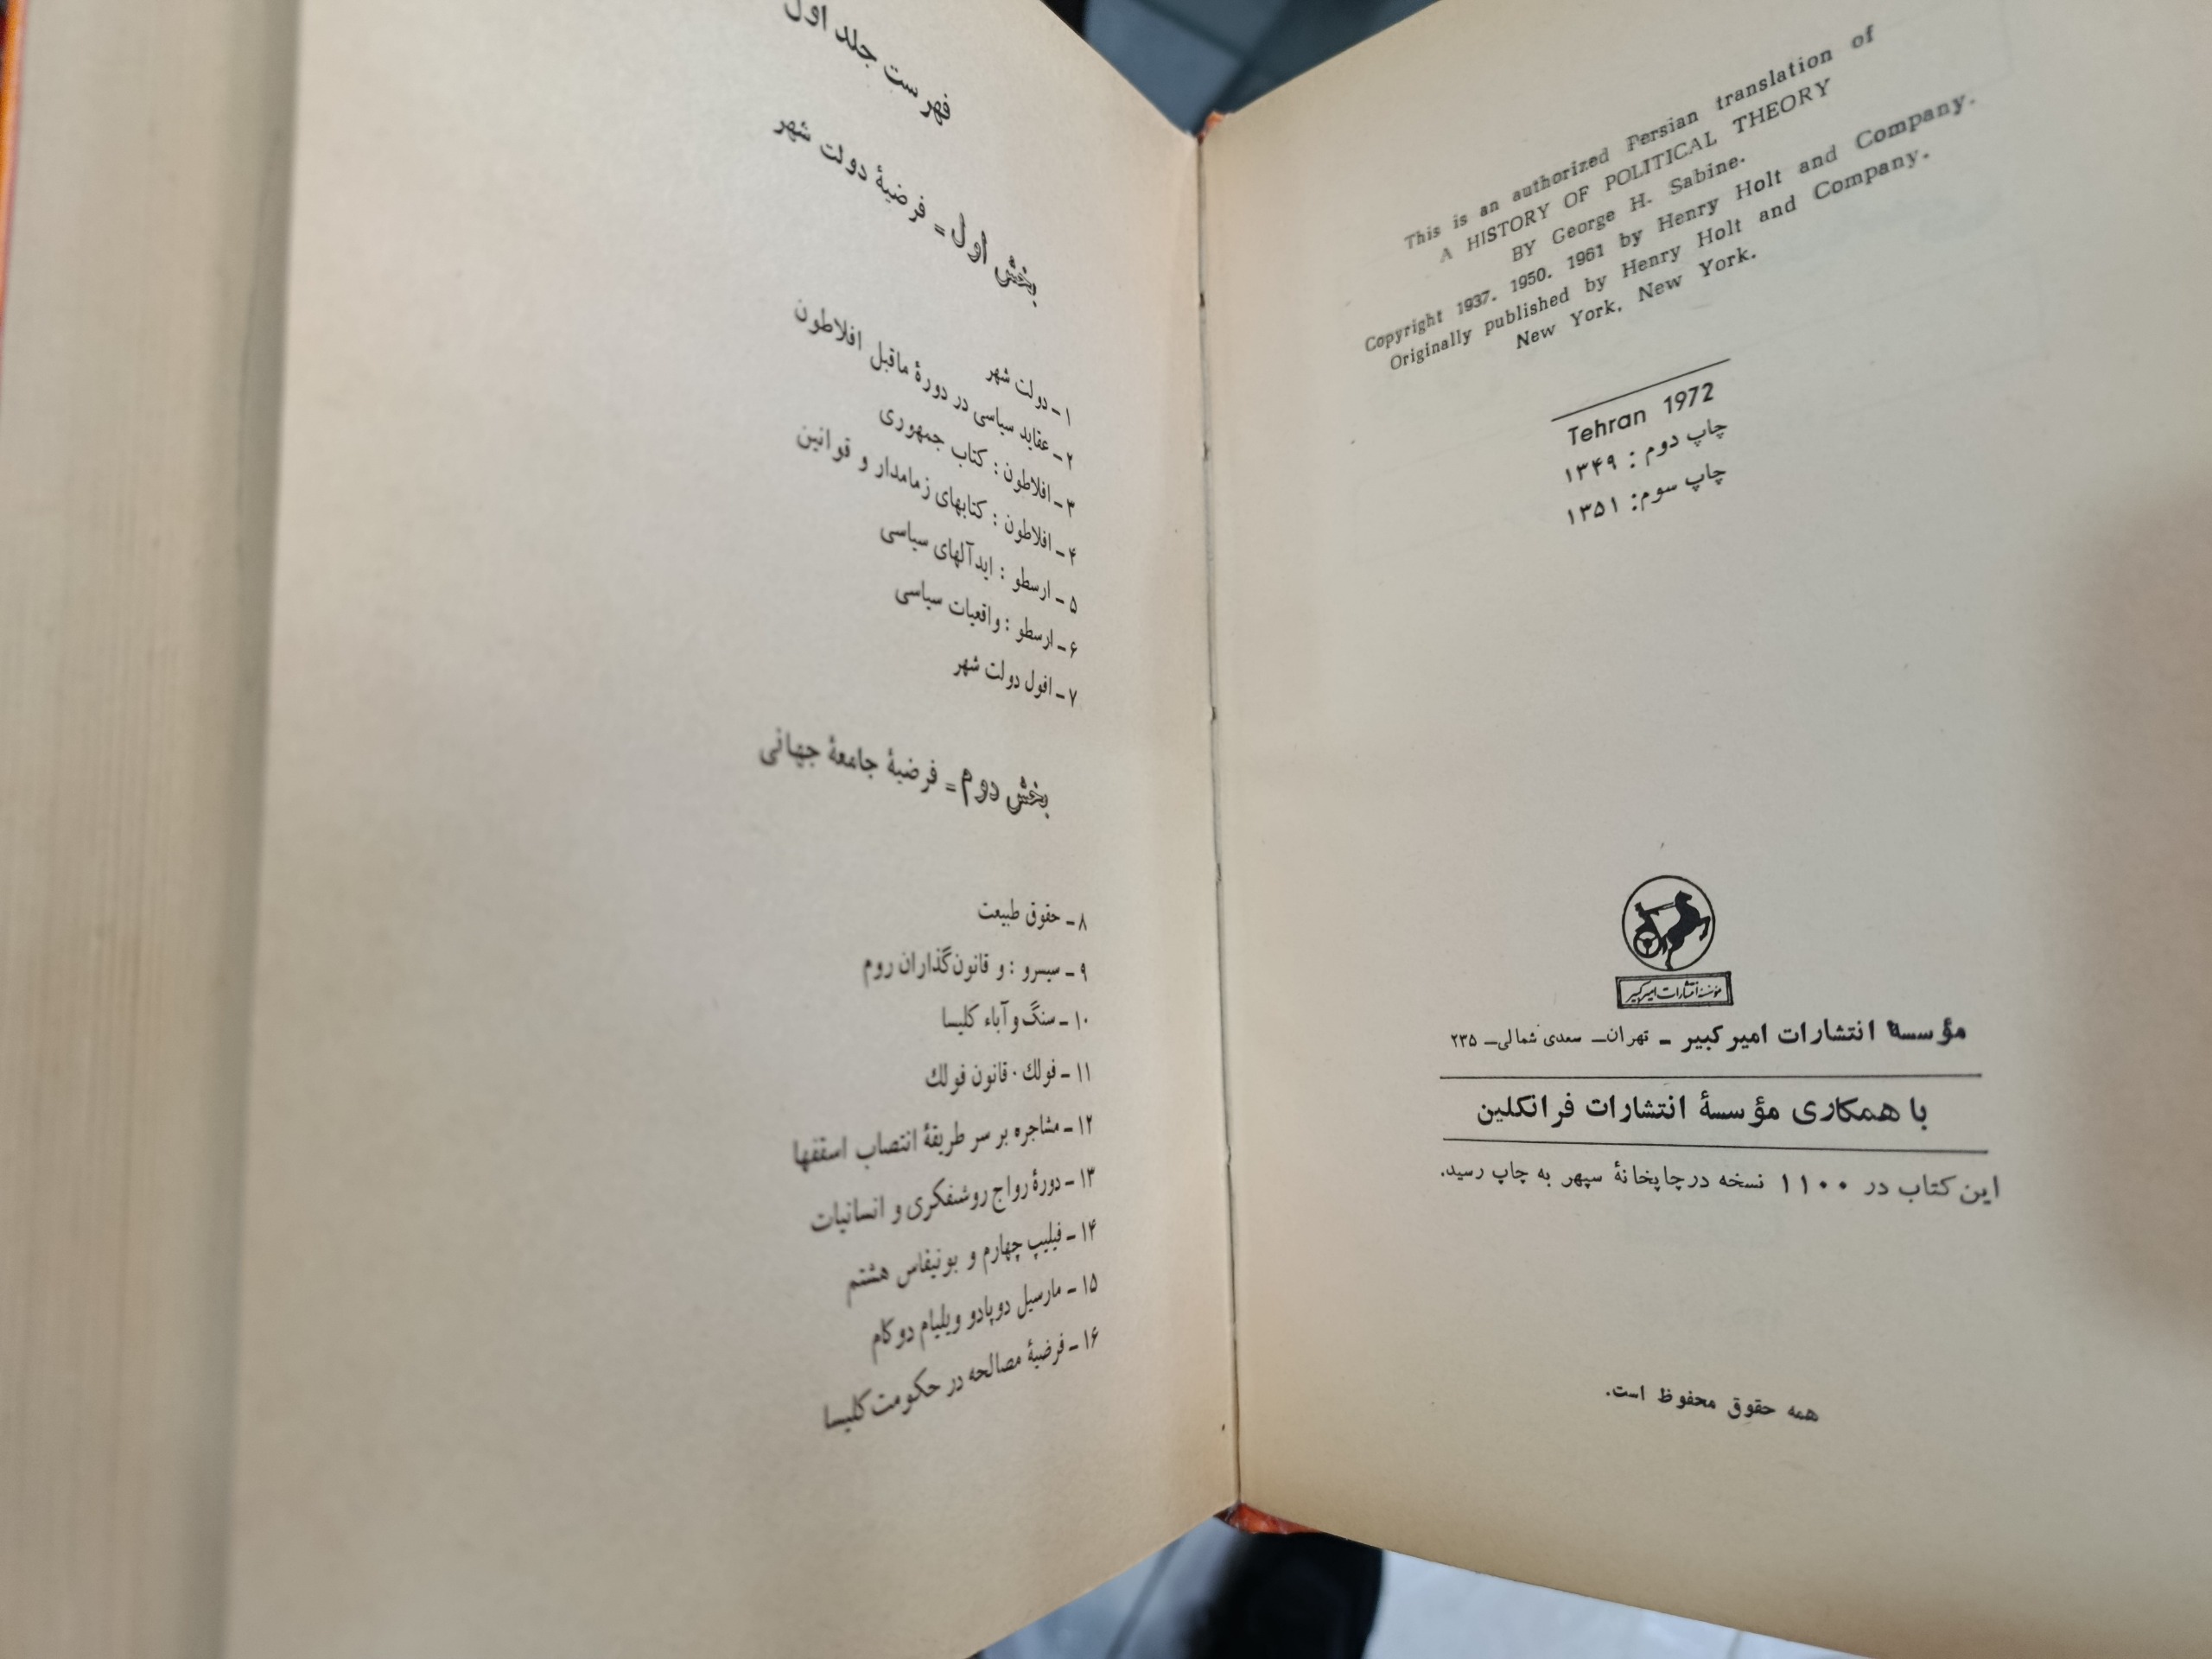 This is an authorized Persian translation of
A HISTORY OF POLITICAL THEORY
BY George H. Sabine.
Copyright 1937. 1950. 1961 by Henry Holt and Company.
Originally published by Henry Holt and Company.
New York. New York.
Tehran 1972
چاپ دوم : ۱۳۴۹
چاپ سوم: ۱۳۵۱
مؤسسه انتشارات امیرکبیر
مؤسسهٔ انتشارات امیرکبیر ـ تهران ـ سعدی شمالی ـ ۲۳۵
با همکاری مؤسسهٔ انتشارات فرانکلین
این کتاب در ۱۱۰۰ نسخه در چاپخانهٔ سپهر به چاپ رسید.
همه حقوق محفوظ است.
فهرست جلد اول
بخش اول = فرضیهٔ دولت شهر
۱ ـ دولت شهر
۲ ـ عقاید سیاسی در دورهٔ ماقبل افلاطون
۳ ـ افلاطون : کتاب جمهوری
۴ ـ افلاطون : کتابهای زمامدار و قوانین
۵ ـ ارسطو : ایدآلهای سیاسی
۶ ـ ارسطو : واقعیات سیاسی
۷ ـ افول دولت شهر
بخش دوم = فرضیهٔ جامعهٔ جهانی
۸ ـ حقوق طبیعت
۹ ـ سیسرو : و قانون‌گذاران روم
۱۰ ـ سنگ و آباء کلیسا
۱۱ ـ فولك . قانون فولك
۱۲ ـ مشاجره بر سر طریقهٔ انتصاب اسقفها
۱۳ ـ دورهٔ رواج روشنفکری و انسانیات
۱۴ ـ فیلیپ چهارم و بونیفاس هشتم
۱۵ ـ مارسیل دوپادو ویلیام دوکام
۱۶ ـ فرضیهٔ مصالحه در حکومت کلیسا